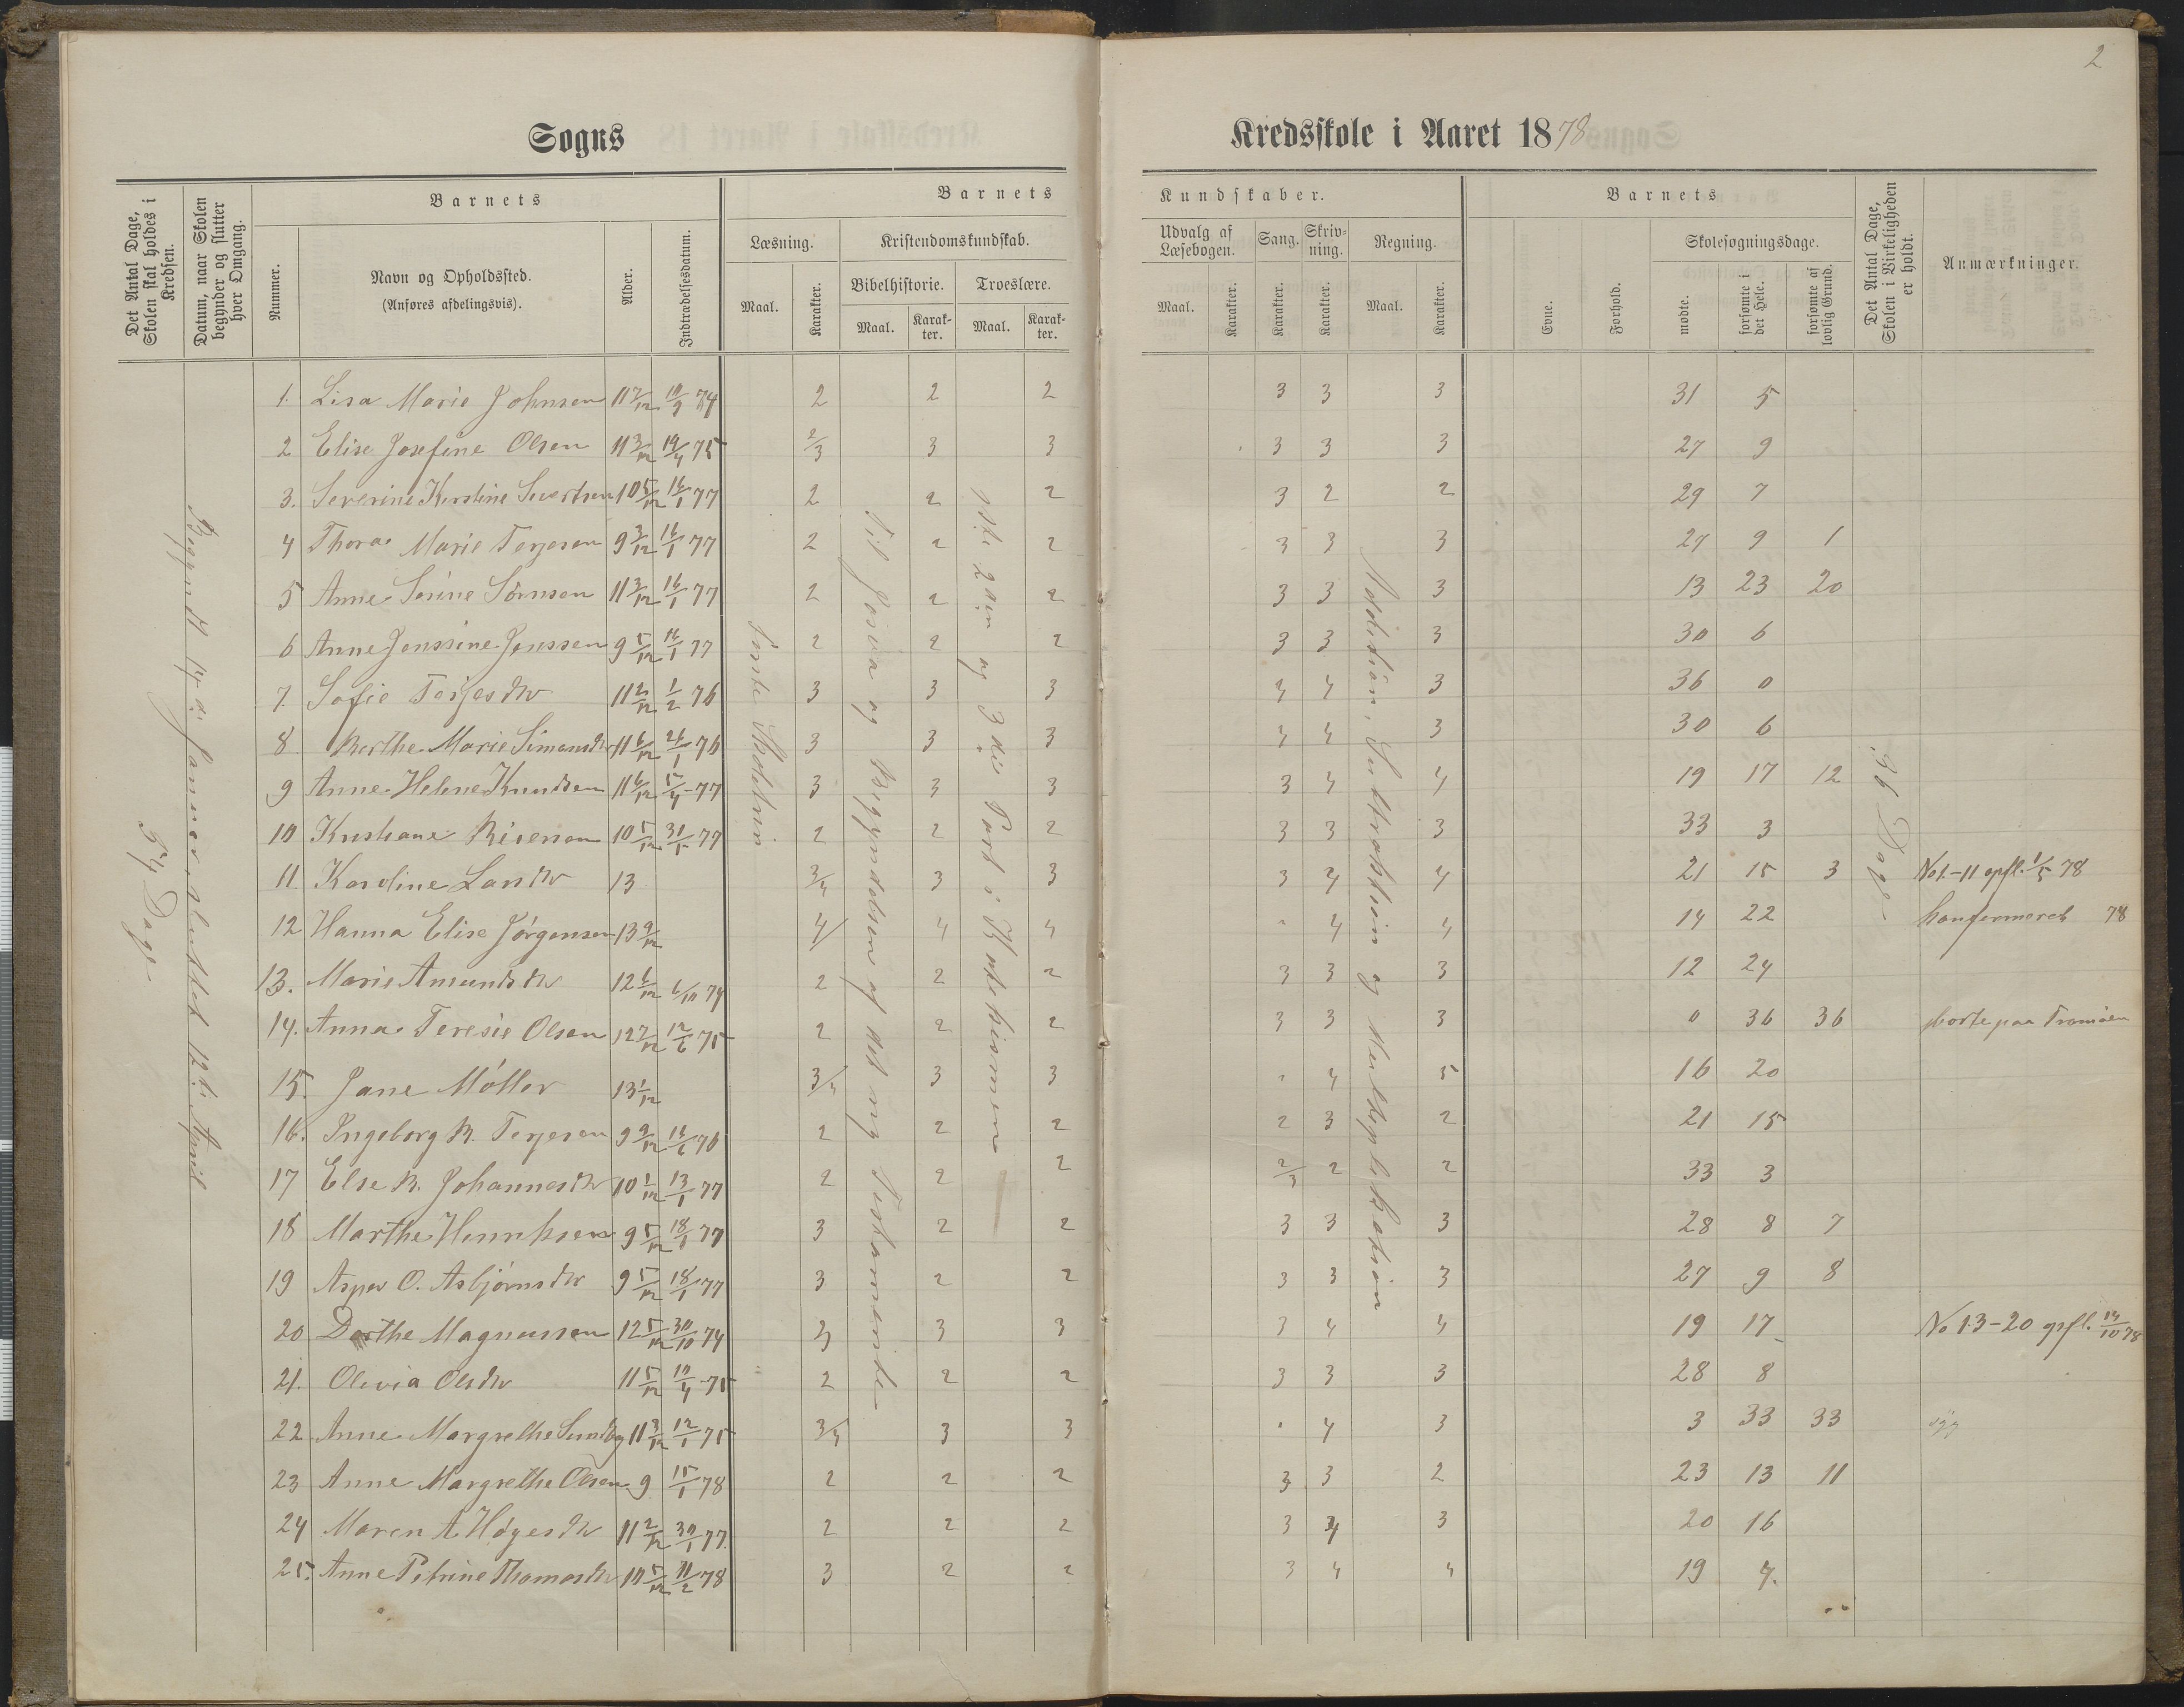 2
Sogns
Kredsskole i Aaret 1878
Det Antal Dage, Skolen skal holdes i Kredsen.
Datum, naar Skolen begynder og slutter hver Omgang.
Barnets
Nummer.
Navn og Opholdssted.
(Anføres afdelingsvis).
Alder.
Indtrædelsesdatum.
Barnets
Læsning.
Maal.
Karakter.
Kristendomskundskab.
Bibelhistorie.
Maal.
Karakter.
Troeslære.
Maal.
Karakter.
Kundskaber.
Udvalg af Læsebogen.
Maal.
Karakter.
Sang.
Karakter.
Skrivning.
Karakter.
Regning.
Maal.
Karakter.
Barnets
Evne.
Forhold.
Skolesøgningsdage.
mødte.
forsømte i det Hele.
forsømte af lovlig Grund.
Det Antal Dage, Skolen i Virkeligheden er holdt.
Anmærkninger.
54 Dage
Begyndt 14de Januar, sluttet 12te April
Til Josva og Begyndelsen af det ny Testamente
2den og 3die Part i Katekismen
Addition, Subtraktion og Multiplikation
36 Dage
1. Lisa Marie Johnsen 11 7/12 10/9 74 2 2 2 3 3 3 31 5
2 Elise Josefine Olsen 11 3/12 19/4 75 2/3 3 3 3 3 3 27 9
3. Severine Kirstine Sivertsen 10 5/12 16/1 77 2 2 2 3 2 2 29 7
4 Thora Marie Terjesen 9 3/12 16/1 77 2 2 2 3 3 3 27 9 1
5 Anne Serine Sørnsen 11 3/12 16/1 77 2 2 2 3 3 3 13 23 20
6 Anne Jenssine Jenssen 9 5/12 16/1 77 2 2 2 3 3 3 30 6
7. Sofie Terjesdtr 11 2/12 1/2 76 3 3 3 4 4 3 36 0
8. Berthe Marie Simonsdtr 11 6/12 26/1 76 3 3 3 4 4 3 30 6
9 Anne Helene Knudsen 11 6/12 5/4 77 3 3 3 3 4 4 19 17 12
10 Kristiane Reiersen 10 5/12 77 2 2 2 3 3 3 33 3
11 Karoline Larsdtr 13 3/4 3 3 3 4 4 21 15 3 No 1-11 opfl. 1/5 78
12 Hanna Elise Jørgensen 13 9/12 4 4 4 4 4 14 22 konfermeret 78
13. Marie Amundsdtr 12 6/12 6/10 74 2 2 2 3 3 3 12 24
14. Anna Teresie Olsen 12 7/12 12/6 75 2 2 2 3 3 3 0 36 36 borte paa Tromøen
15. Jane Møller 13 1/12 3/4 3 3 4 5 16 20
16. Ingeborg B. Terjesen 9 9/12 16/6 76 2 2 2 2 3 2 21 15
17 Else B. Johannesdtr 10 1/12 13/1 77 2 2 2 2/3 2 2 33 3
18 Marthe Henriksen 9 5/12 18/1 77 3 2 2 3 3 3 28 8 7
19 Asper O. Asbjørnsdtr 9 5/12 18/1 77 3 2 2 3 3 3 27 9 8
20 Dorthe Magnussen 12 5/12 30/10 74 3 3 3 3 4 4 19 17 No 13-20 opfl. 14/10 78
21. Olivia Olsdtr 11 5/12 10/4 75 2 2 2 3 3 3 28 8
22 Anne Margrethe Sundby 11 3/12 12/1 75 3/4 3 3 4 3 3 33 33 syg
23 Anne Margrethe Olsen 9 15/1 78 2 2 2 3 3 2 23 13 11
24 Maren A. Høgesdtr 11 2/12 30/1 77 2 2 2 3 4 3 20 16
25. Anne Petrine Thomasdtr 10 5/12 11/2 78 3 2 2 3 4 4 19 7.